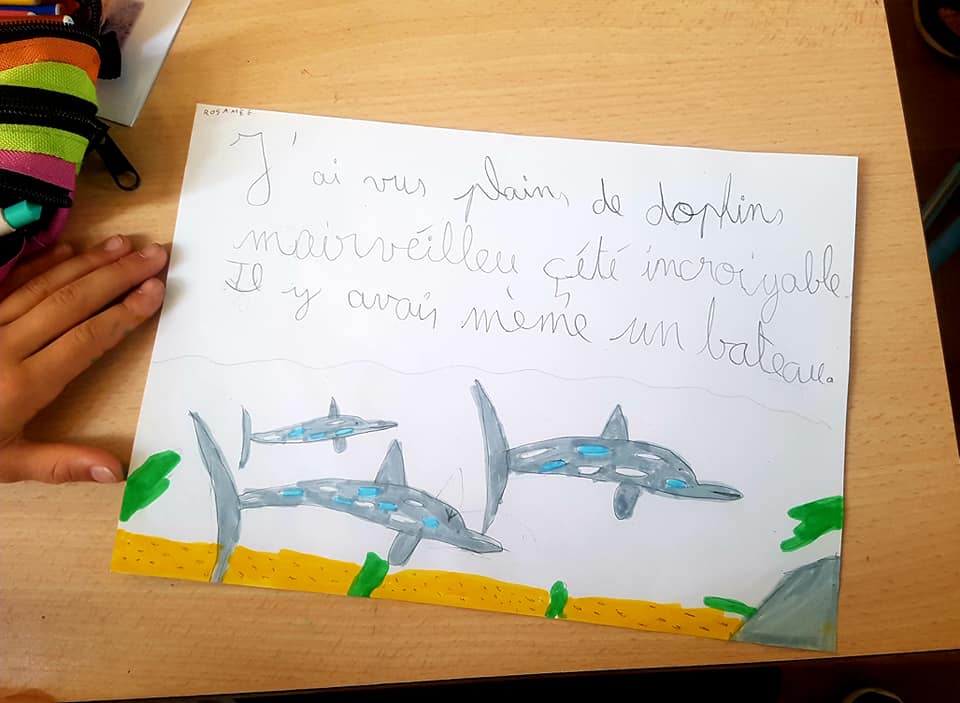 ROSAMEE
J'ai vus plains de dophins
mairvéilleu çété incroiyable.
Il y avais mème un bateau.